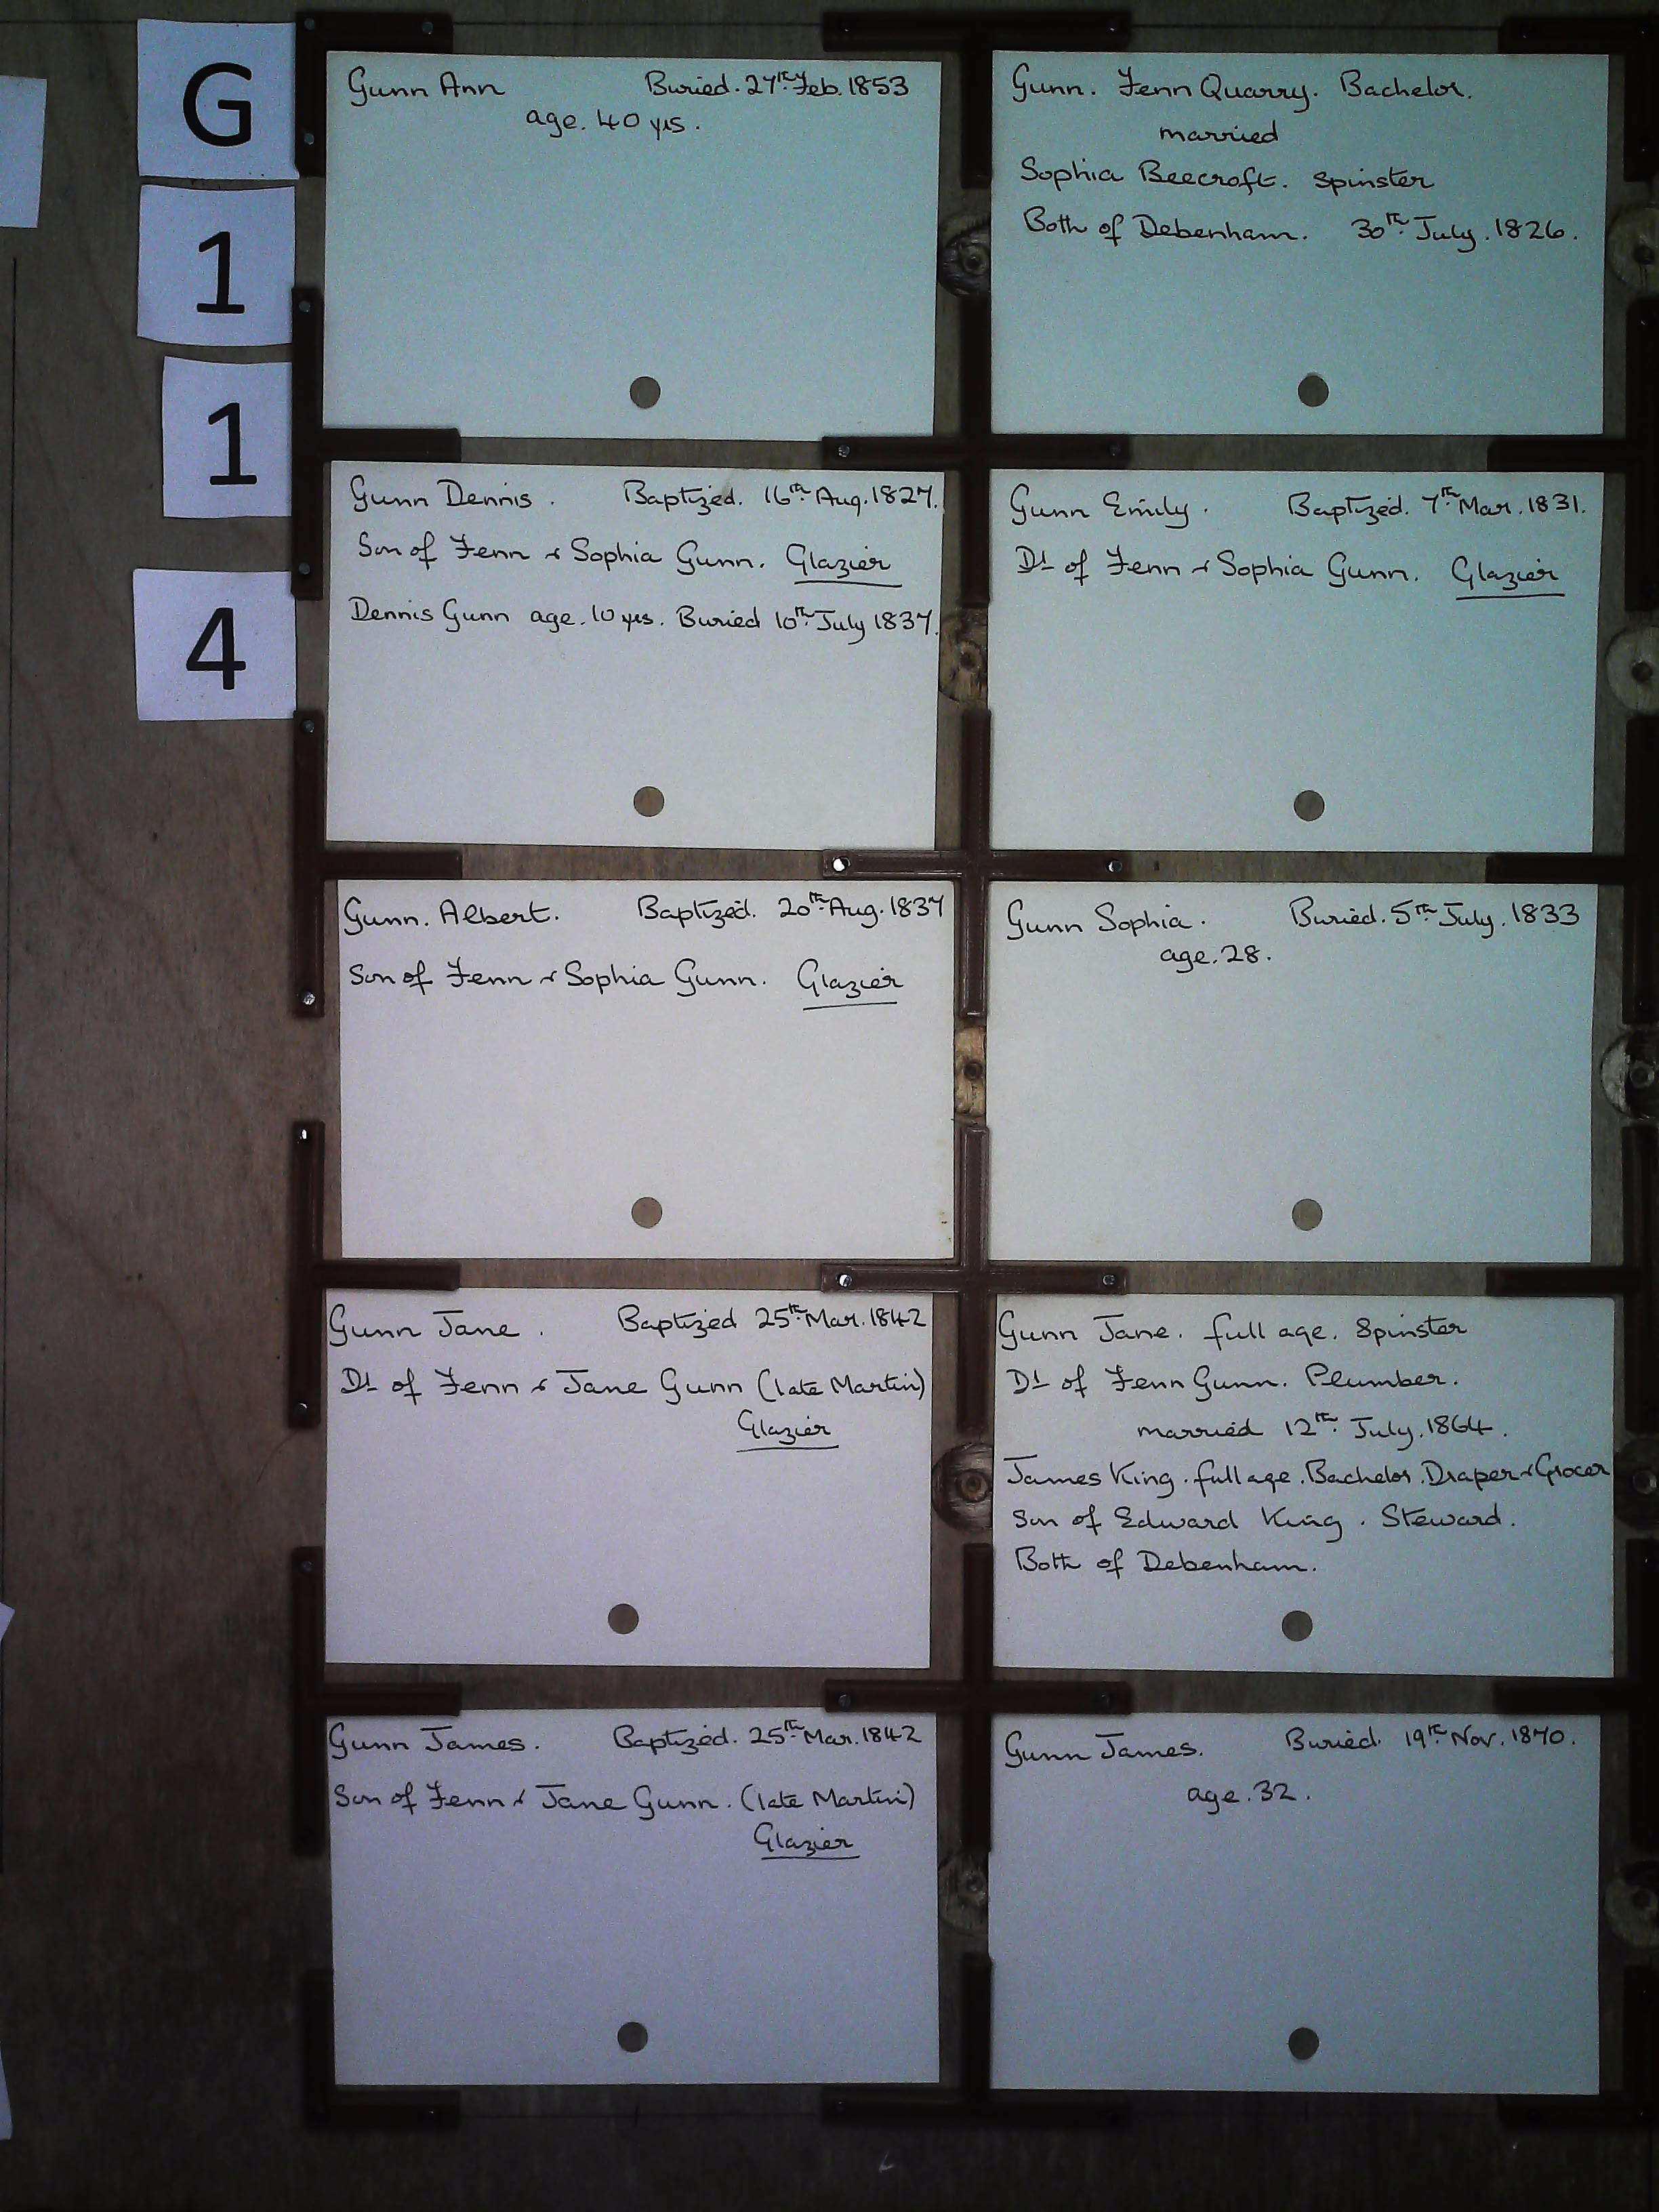 G
1
1
4
Gunn Ann Buried. 27th Feb. 1853
age. 40 yrs.
Gunn. Fenn Quarry. Bachelor.
married
Sophia Beecroft. Spinster
Both of Debenham. 30th July. 1826.
Gunn Dennis. Baptized. 16th Aug. 1827.
Son of Fenn & Sophia Gunn. Glazier
Dennis Gunn age. 10 yrs. Buried 10th July 1837.
Gunn Emily. Baptized. 7th Mar. 1831.
Dt of Fenn & Sophia Gunn. Glazier
Gunn. Albert. Baptized. 20th Aug. 1837
Son of Fenn & Sophia Gunn. Glazier
Gunn Sophia. Buried. 5th July. 1833
age. 28.
Gunn Jane. Baptized 25th Mar. 1842
Dt of Fenn & Jane Gunn (late Martin)
Glazier
Gunn Jane. full age. Spinster
Dt of Fenn Gunn. Plumber.
married 12th July. 1864.
James King. full age. Bachelor. Draper & Grocer
Son of Edward King. Steward.
Both of Debenham.
Gunn James. Baptized. 25th Mar. 1842
Son of Fenn & Jane Gunn. (late Martin)
Glazier
Gunn James. Buried. 19th Nov. 1870.
age. 32.